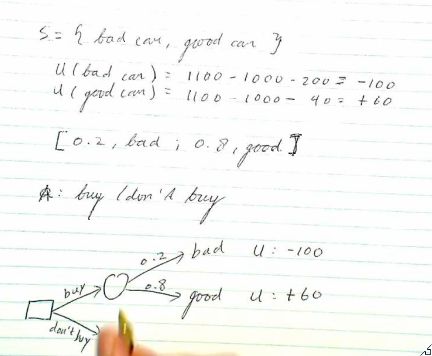 S = { bad car, good car }
U(bad car) = 1100 - 1000 - 200 = -100
U(good car) = 1100 - 1000 - 40 = +60
[0.2, bad ; 0.8, good]
A: buy / don't buy
0.2 bad U: -100
buy 0.8 good U: +60
don't buy